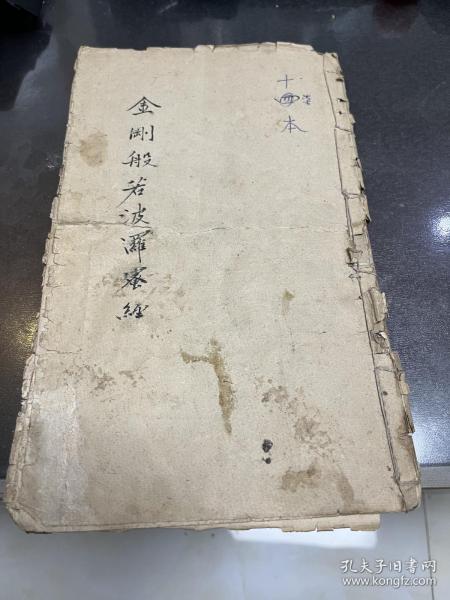 十四本
金剛般若波羅蜜經
孔夫子旧书网
www.kongfz.com